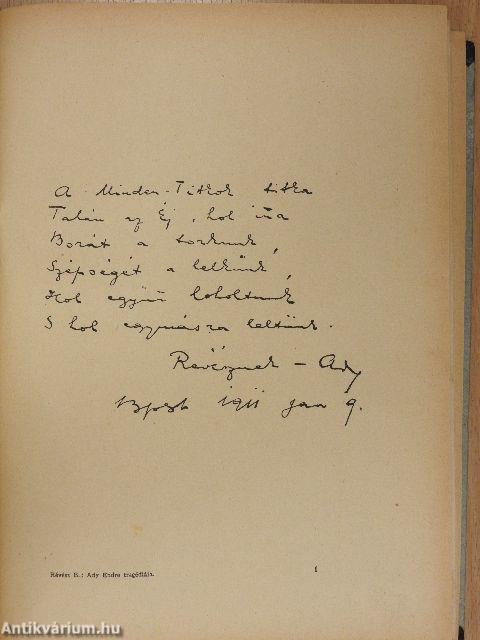 A Minden-Titkok titka
Talán az Éj, hol itta
Borát a torkunk,
Szépségét a lelkünk,
Hol együtt loholtunk
S hol egymásra leltünk.
Révésznek – Ady
Bpest 1911 jan 9.
Révész B.: Ady Endre tragédiája.
1
Antikvárium.hu